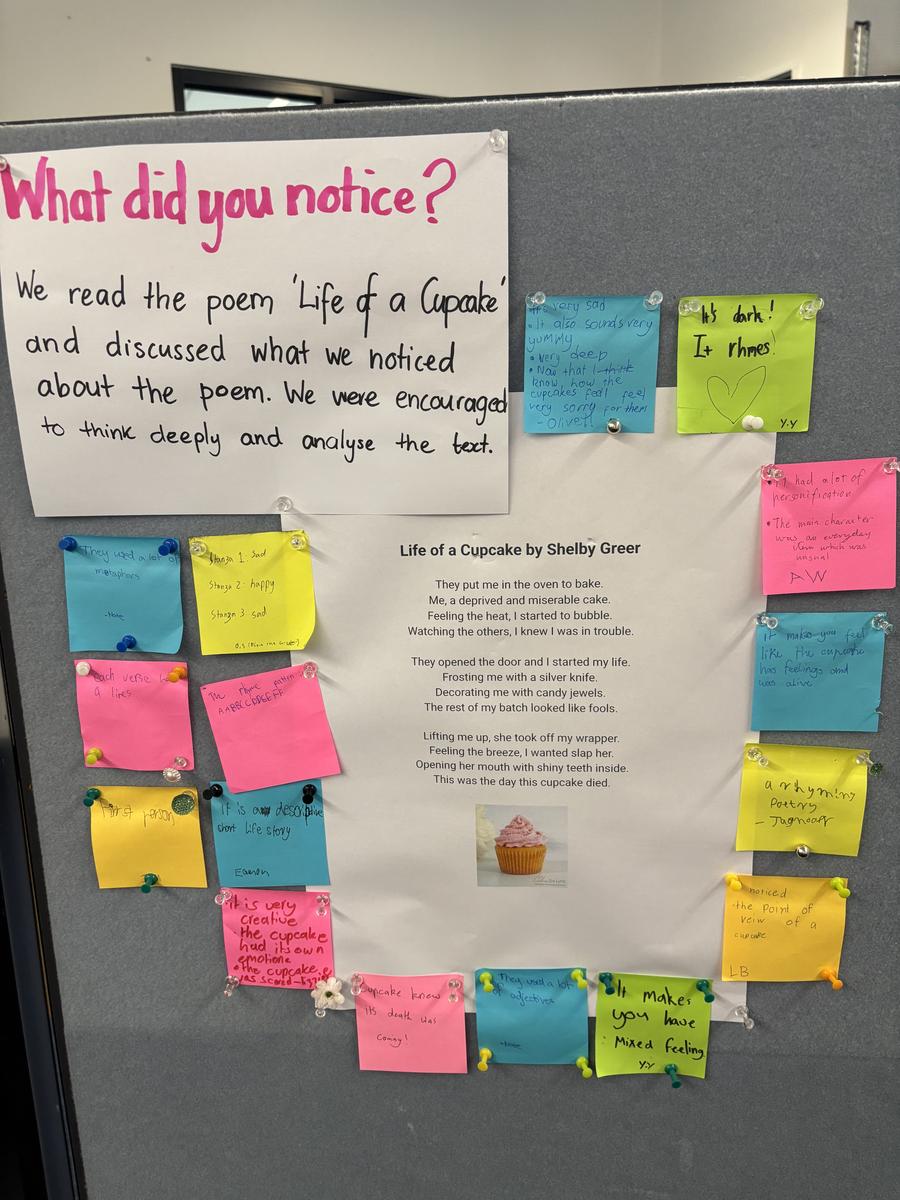 What did you notice?
We read the poem 'Life of a Cupcake'
and discussed what we noticed
about the poem. We were encouraged
to think deeply and analyse the text.
It's very sad
• It also sounds very
yuMMY
• very deep
• Now that I think
know, how the
cupcakes feel feel
very sorry for them
It's dark!
It rhmes!
Y.Y
• It had a lot of
personification
• The main character
was an everyday
item which was
unusual
AW
They used a lot of
metaphors
Stanza 1: Sad
Stanza 2: happy
Stanza 3: sad
Life of a Cupcake by Shelby Greer
They put me in the oven to bake.
Me, a deprived and miserable cake.
Feeling the heat, I started to bubble.
Watching the others, I knew I was in trouble.
They opened the door and I started my life.
Frosting me with a silver knife.
Decorating me with candy jewels.
The rest of my batch looked like fools.
Lifting me up, she took off my wrapper.
Feeling the breeze, I wanted slap her.
Opening her mouth with shiny teeth inside.
This was the day this cupcake died.
It makes you feel
like the cupcake
has feelings and
was alive
each verse
4 lines
The rhyme pattern
AABBCCDDEEFF
a rhyming
Poetry
First person
It is a descriptive
short life story
Eamon
noticed
the point of
veiw of a
cupcake
LB
It is very
creative
the cupcake
had its own
emotions
• the cupcake
was scared
Cupcake knew
its death was
coming!
They used a lot
of adjectives
It makes
you have
Mixed feeling
Y.Y